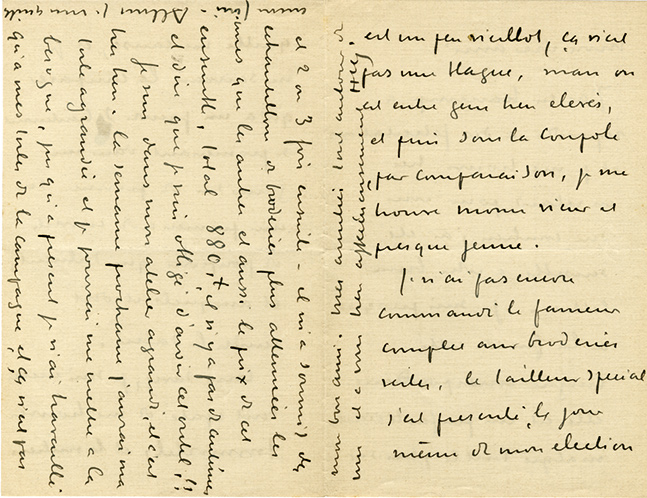 est un peu vieillot, ça n'est
pas une blague, mais on
est entre gens bien elevés,
et puis sous la Coupole
par comparaison, je me
trouve moins vieux et
presque jeune.
Je n'ai pas encore
commandé le fameux
complet aux broderies
vertes, le tailleur special
s'est presenté le jour
même de mon election
et 2 ou 3 fois ensuite - il m'a soumis des
echantillons de broderies plus les
unes que les autres et aussi le prix de cet
ensemble, total 880, et il n'y a pas
et dire que je suis obligé d'avoir cet !!
Je suis dans mon atelier agrandi, et c'est
tres bien. la semaine prochaine j'aurai ma
toile agrandie et je pourrai me mettre à la
besogne, jusqu'à present je n'ai travaillé
qu'à mes toiles de la campagne et ça n'est pas
Allons je vous quitte
mon bon ami. mes amitiés tout autour de
vous et a vous bien affectueusement